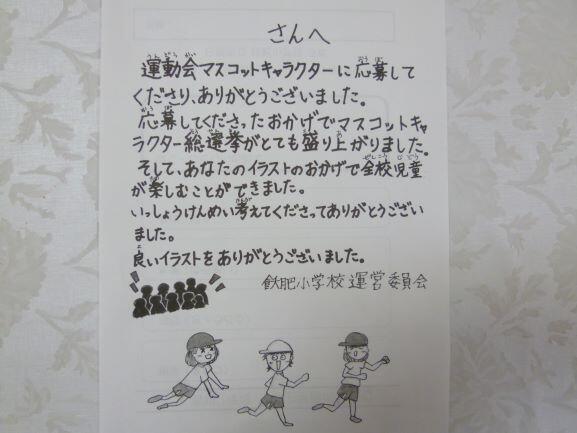 さんへ
運動会マスコットキャラクターに応募して
くださり、ありがとうございました。
応募してくださったおかげでマスコットキャ
ラクター総選挙がとても盛り上がりました。
そして、あなたのイラストのおかげで全校児童
が楽しむことができました。
いっしょうけんめい考えてくださってありがとうござい
ました。
良いイラストをありがとうございました。
飫肥小学校 運営委員会